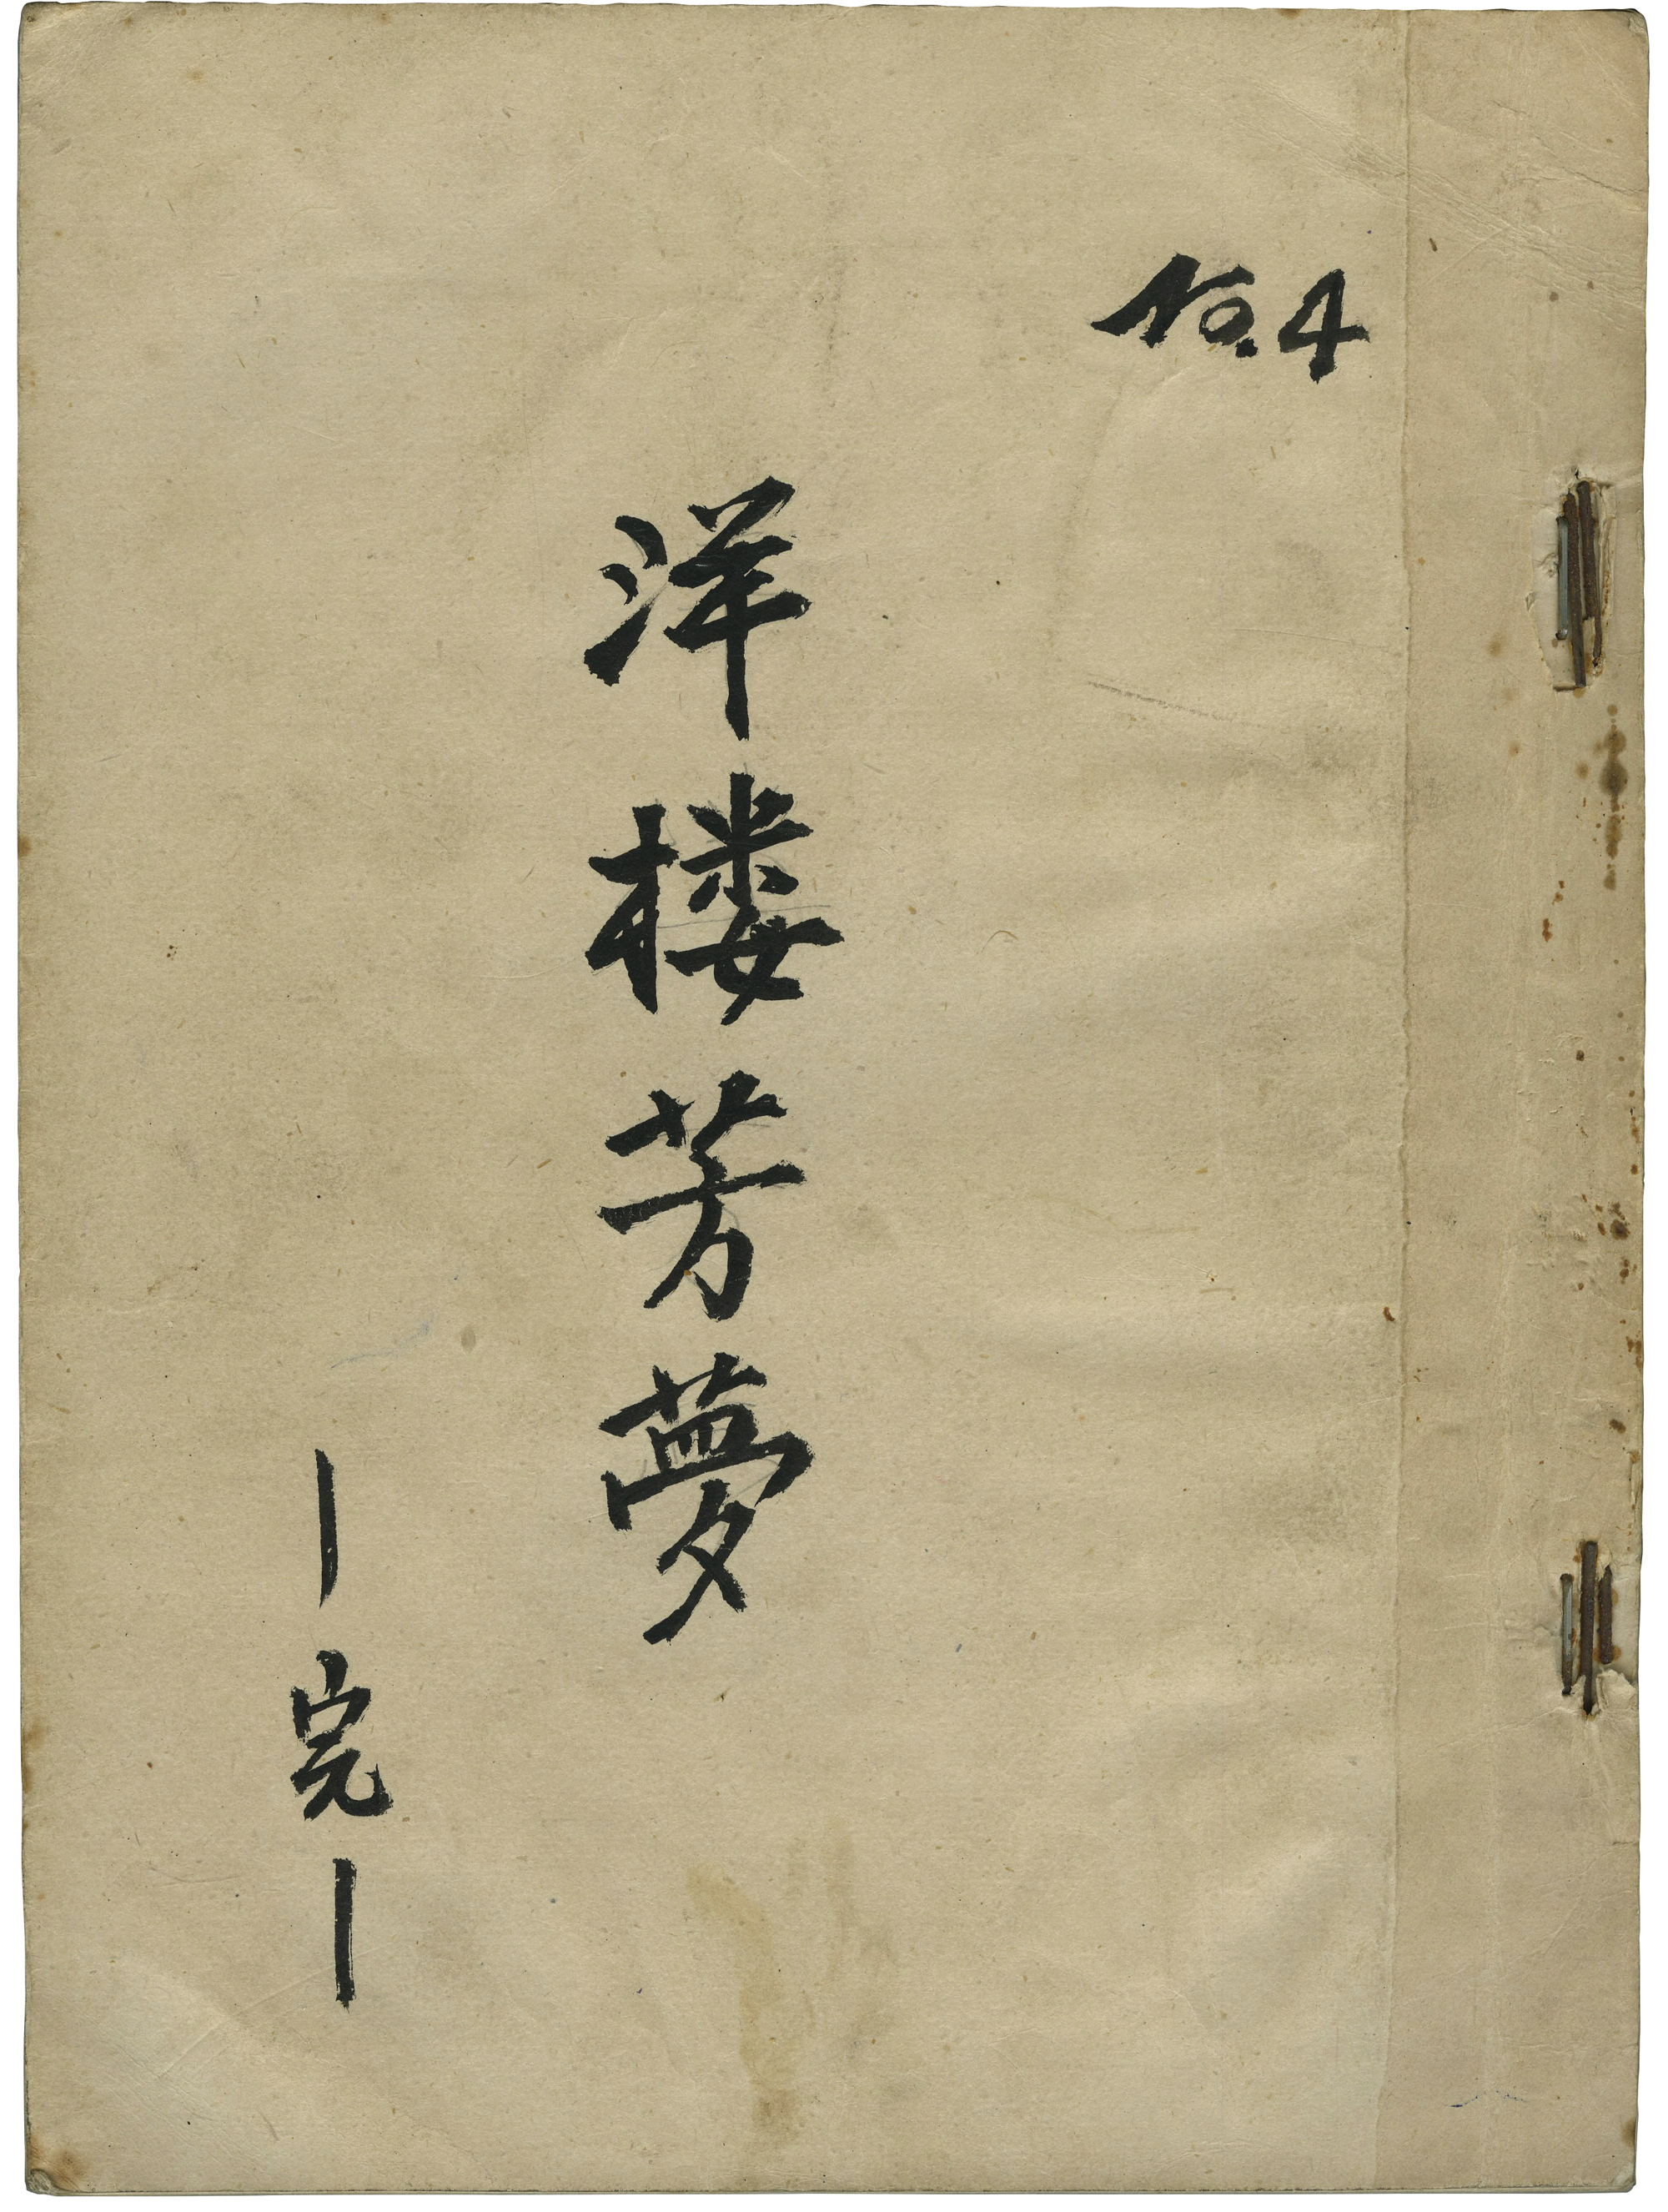 No.4
洋楼芳夢
―完―